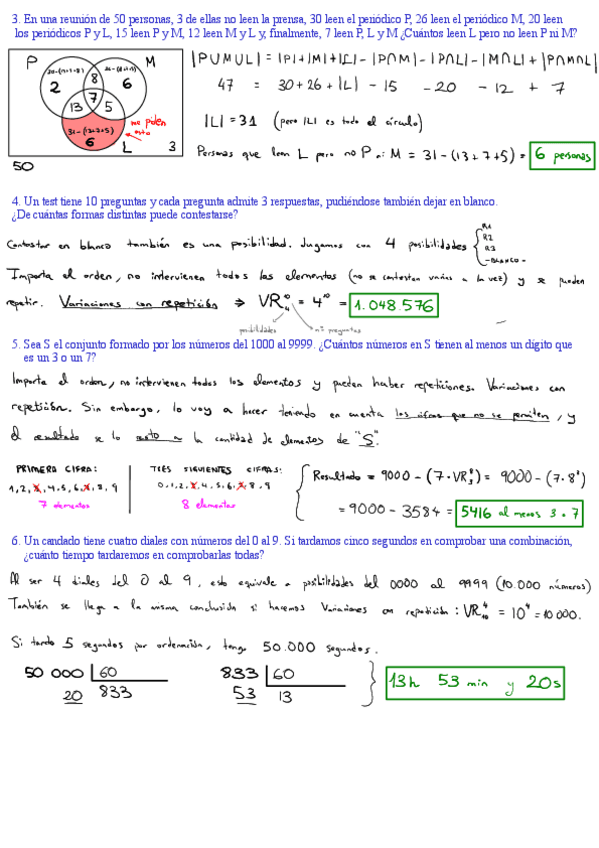 3. En una reunión de 50 personas, 3 de ellas no leen la prensa, 30 leen el periódico P, 26 leen el periódico M, 20 leen
los periódicos P y L, 15 leen P y M, 12 leen M y L y, finalmente, 7 leen P, L y M ¿Cuántos leen L pero no leen P ni M?
P M
2 8 6
7
13 5
31-(13+7+5)
6
me piden esto
L 3
50
|PUMUL| = |P|+|M|+|L|-|P∩M|-|P∩L|-|M∩L|+|P∩M∩L|
47 = 30+26+|L|-15 -20 -12 + 7
|L| = 31 (pero |L| es todo el círculo)
Personas que leen L pero no P ni M = 31-(13+7+5) = 6 personas
4. Un test tiene 10 preguntas y cada pregunta admite 3 respuestas, pudiéndose también dejar en blanco.
¿De cuántas formas distintas puede contestarse?
Contestar en blanco también es una posibilidad. Jugamos con 4 posibilidades
R1
R2
R3
-BLANCO-
Importa el orden, no intervienen todos los elementos (no se contestan varias a la vez) y se pueden
repetir. Variaciones con repetición ⇒ VR₄¹⁰ = 4¹⁰ = 1.048.576
posibilidades nº preguntas
5. Sea S el conjunto formado por los números del 1000 al 9999. ¿Cuántos números en S tienen al menos un dígito que
es un 3 o un 7?
Importa el orden, no intervienen todos los elementos y pueden haber repeticiones. Variaciones con
repetición. Sin embargo, lo voy a hacer teniendo en cuenta las cifras que no se permiten, y
el resultado se lo resto a la cantidad de elementos de "S".
PRIMERA CIFRA:
1, 2, 3, 4, 5, 6, 7, 8, 9
7 elementos
TRES SIGUIENTES CIFRAS:
0, 1, 2, 3, 4, 5, 6, 7, 8, 9
8 elementos
Resultado = 9000 - (7·VR₈³) = 9000 - (7·8³)
= 9000 - 3584 = 5416 al menos 3 o 7
6. Un candado tiene cuatro diales con números del 0 al 9. Si tardamos cinco segundos en comprobar una combinación,
¿cuánto tiempo tardaremos en comprobarlas todas?
Al ser 4 diales del 0 al 9, esto equivale a posibilidades del 0000 al 9999 (10.000 números)
También se llega a la misma conclusión si hacemos Variaciones con repetición: VR₁₀⁴ = 10⁴ = 10.000.
Si tardo 5 segundos por ordenación, tengo 50.000 segundos.
50 000 | 60
20 833
833 | 60
53 13
13h 53 min y 20s